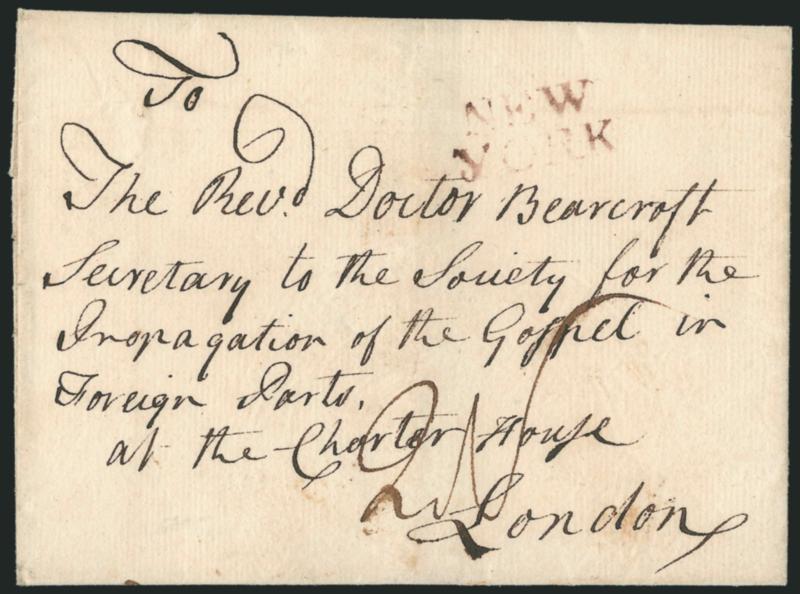 To
NEW
YORK
The Revd. Doctor Bearcroft
Secretary to the Society for the
Propagation of the Gospel in
Foreign Parts.
at the Charter House
London